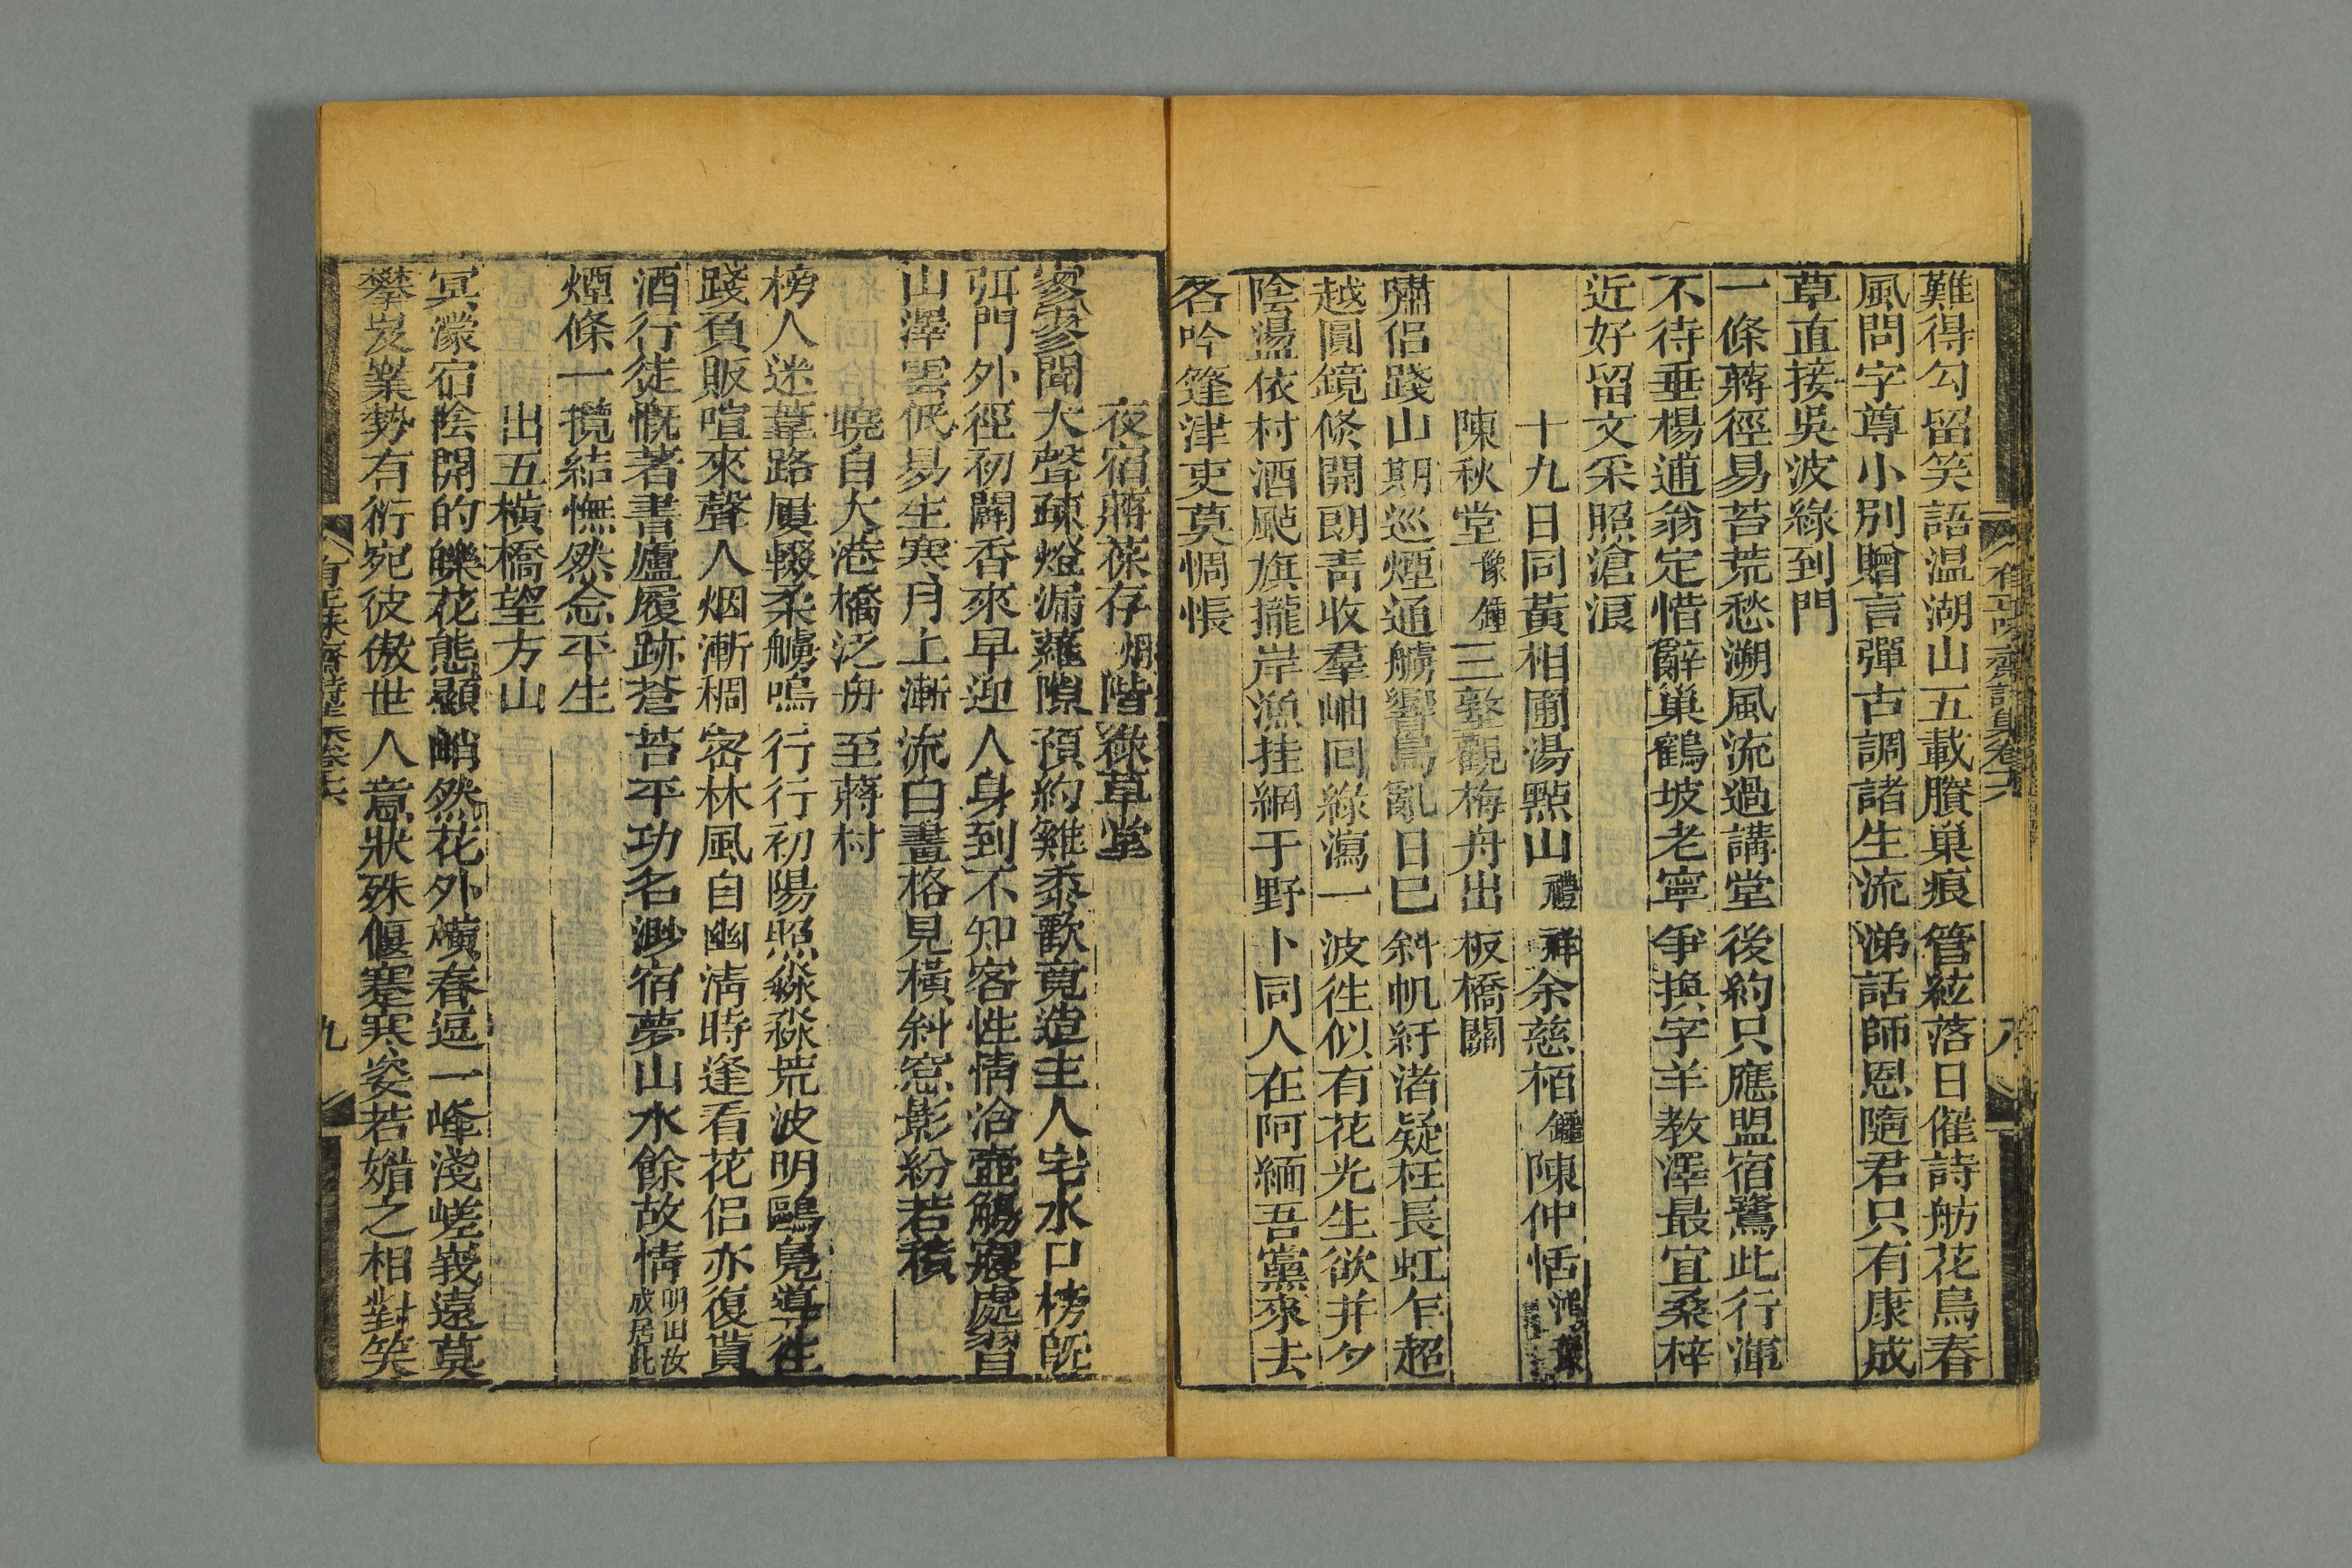 難得勾留笑語温湖山五載賸巢痕管絃落日催詩舫花鳥春
風問字尊小別贈言彈古調諸生流涕話師恩隨君只有康成
草直接吳波綠到門
一條蔣徑易苔荒愁溯風流過講堂後約只應盟宿鷺此行渾
不待垂楊逋翁定惜辭巢鶴坡老寧爭換字羊教澤最宜桑梓
近好留文采照滄浪
十九日同黃相圃湯㸃山禮祥余慈栢鍾陳仲恬鴻豫
陳秋堂豫鍾三墪觀梅舟出板橋關
嘯侶踐山期巡煙通艣響鳥亂日巳斜帆紆渚疑枉長虹乍超
越圓鏡倐開朗靑收羣岫回綠瀉一波徃似有花光生欲并夕
陰盪依村酒颭旗攏岸漁挂網于野卜同人在阿緬吾黨來去
各吟篷津吏莫惆悵
夜宿蔣葆存炯階綠草堂
寥寥聞犬聲疎燈漏蘿隙預約雞黍歡竟造主人宅水口榜旣
弭門外徑初闢香來早迎人身到不知客性情洽壺觴寢處習
山澤雲低易生寒月上漸流白畫格見橫斜窓影紛若積
曉自大港橋泛舟至蔣村
榜人迷葦路屢輟柔艣鳴行行初陽照淼淼荒波明鷗鳧導往
踐負販喧來聲人烟漸稠宻林風自幽淸時逢看花侶亦復貰
酒行徒慨著書廬履跡蒼苔平功名渺宿夢山水餘故情明山故
成居此
煙條一攬結憮然念平生
出五橫橋望方山
冥濛宿陰開的皪花態顯峭然花外橫春逗一峰淺嵯峩遠莫
攀岌嶪勢有衍宛彼傲世人意狀殊偃蹇寒姿若媚之相對笑
九